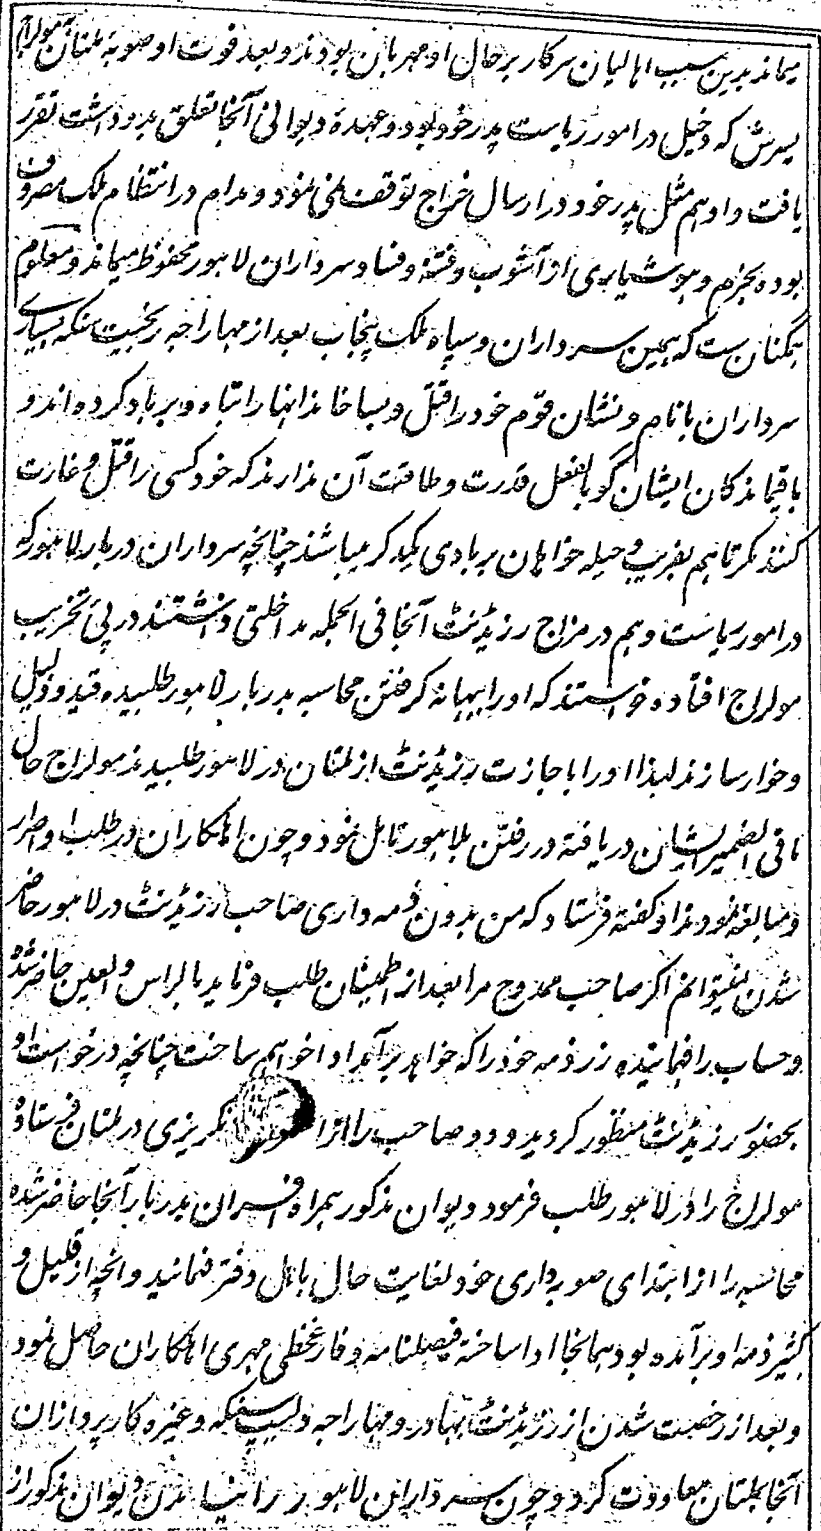 میماند بدین سبب اهالیان سرکار بر حال او مهربان بودند و بعد فوت او صوبهٔ ملتان به مولراج
پسرش که دخیل در امور ریاست پدر خود بود و عهدهٔ دیوانی آنجا تعلق بدو داشت تقرر
یافت و او هم مثل پدر خود در ارسال خراج توقف نمی نمود و مدام در انتظام ملک مصروف
بوده بحزم و هوشیاری از آشوب و فتنه و فساد سرداران لاهور محفوظ میماند و معلوم
همگنان ست که همین سرداران و سپاه ملک پنجاب بعد از مهاراجه رنجیت سنگه بسیاری
سرداران با نام و نشان قوم خود را قتل و بسا خاندانها را تباه و برباد کرده اند و
باقیماندگان ایشان گو بالفعل قدرت و طاقت آن ندارند که خود کسی را قتل و غارت
کنند مگر تا هم بفریب و حیله خواهان بربادی یکدگر میباشند چنانچه سرداران دربار لاهور که
در امور ریاست و هم در مزاج رزیڈنٹ آنجا فی الجمله مداخلتی داشتند در پئ تخریب
مولراج افتاده خواستند که او را ببهانه گرفتن محاسبه بدربار لاهور طلبیده قید و ذلیل
و خوار سازند لهذا او را با جازت رزیڈنٹ از ملتان در لاهور طلبیدند مولراج حال
مافی الضمیر ایشان دریافته در رفتن بلاهور تامل نمود و چون اهلکاران در طلب او اصرار
و مبالغه نمودند او گفته فرستاد که من بدون ذمه داری صاحب رزیڈنٹ در لاهور حاضر
شدن نمیتوانم اگر صاحب ممدوح مرا بعد از اطمینان طلب فرماید بالراس و العین حاضر شده
و حساب را فهمانیده زر ذمه خود را که خواهد برآمد ادا خواهم ساخت چنانچه درخواست او
بحضور رزیڈنٹ منظور گردید و دو صاحب را از انگریزی در ملتان فرستاده
مولراج را در لاهور طلب فرمود دیوان مذکور همراه افسران بدربار آنجا حاضر شده
محاسبه را از ابتدای صوبه داری خود لغایت حال باهل دفتر فهمانید و آنچه از قلیل و
کثیر ذمه او برآمده بود همانجا ادا ساخته فیصلنامه و فارغخطی مهری اهلکاران حاصل نمود
و بعد از رخصت شدن از رزیڈنٹ بهادر و مهاراجه دلیپ سنگه و غیره کارپردازان
آنجا بملتان معاودت کرد و چون سرداران لاهور را دیوان مذکور از